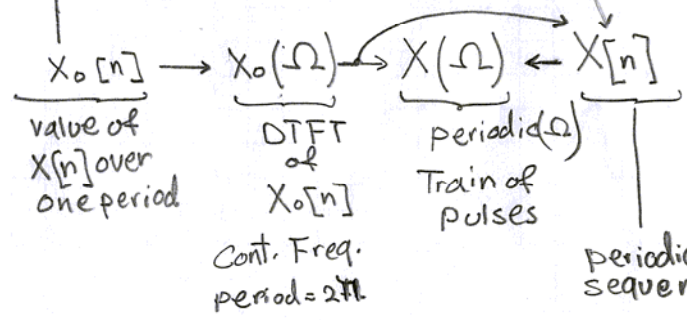 X₀[n] → X₀(Ω) → X(Ω) ← X[n]
value of
X[n] over
one period
DTFT
of
X₀[n]
Cont. Freq.
period = 2π
periodic(Ω)
Train of
pulses
periodic
sequen